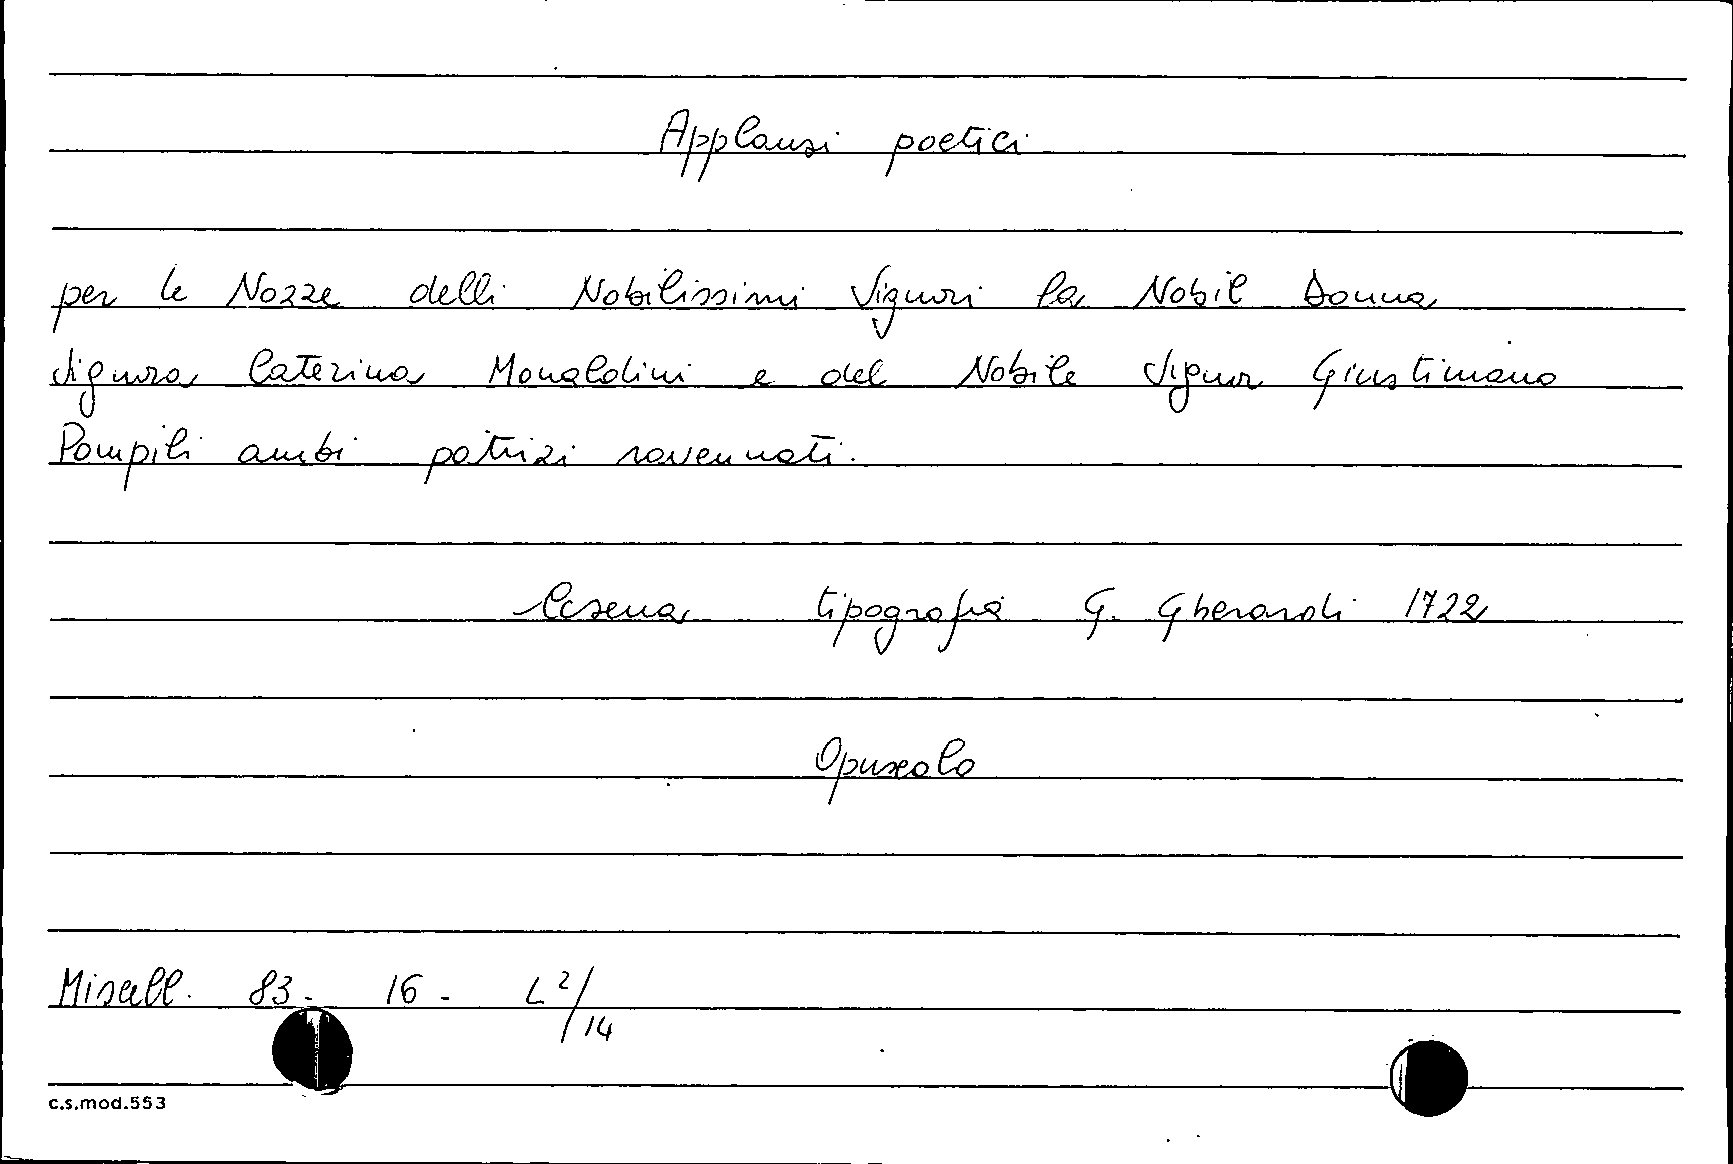 Applausi poetici
per le Nozze delli Nobilissimi Signori la Nobil Donna
Signora Caterina Monaldini e del Nobile Signor Giustiniano
Pompili ambi patrizi ravennati.
Cesena tipografia G. Gherardi 1722
Opuscolo
Miscell. 83 - 16 - L 2/14
c.s.mod.553